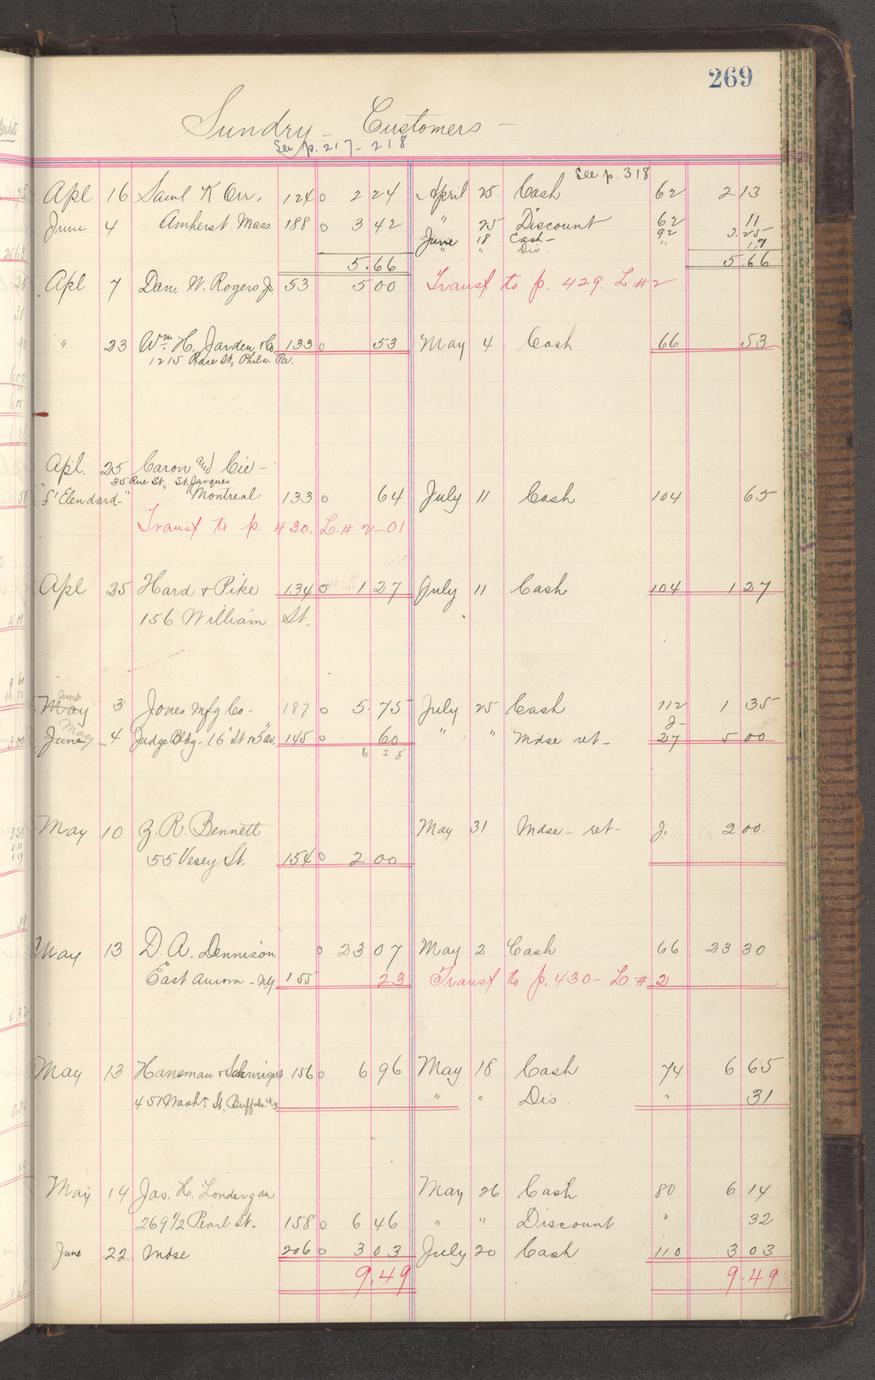 269
Sundry - Customers -
See p. 217 - 218
See p. 318
Apl 16 Saml K Orr, 124 0 2 24 April 25 Cash 62 2 13
June 4 Amherst Mass 188 0 3 42 " 25 Discount 62 11
June 18 Cash - 92 3.25
" " Dis. " 17
5.66 5 66
Apl 7 Dan. W. Rogers Jr. 53 5 00 Transf to p. 429 L #2
" 23 Wm H. Jarden & Co 133 0 53 May 4 Cash 66 53
1215 Race St, Phila. Pa.
Apl. 25 Caron and Cie -
35 Rue St. St. Jacques
Montreal 133 0 64 July 11 Cash 104 65
Transf to p. 430. L. # 2 - 01
Apl 25 Hard & Pike 134 0 1 27 July 11 Cash 104 1 27
156 William St.
June
May 3 Jones Mfg Co - 187 0 5.75 July 25 Cash 112 1 35
May
June 4 Judge Bldg - 16" St & 5" av. 145 0 60 " " Mdse ret - J- 27 5 00
6 25
May 10 Z. R. Bennett May 31 Mdse - ret - J. 2 00.
55 Vesey St. 154 0 2 00
May 13 D. A. Dennison 0 23 07 May 2 Cash 66 23 30
East Aurora - N.Y. 155 23 Transf to p. 430 - L. # 2
May 13 Hansman & 156 0 6 96 May 18 Cash 74 6 65
451 Washn St. Buffalo. N.Y. " " Dis " 31
May 14 Jas. H. Londergan May 26 Cash 80 6 14
269 1/2 Pearl St. 158 0 6 46 " " Discount " 32
June 22 Mdse 206 0 3 03 July 20 Cash 110 3 03
9.49 9.49